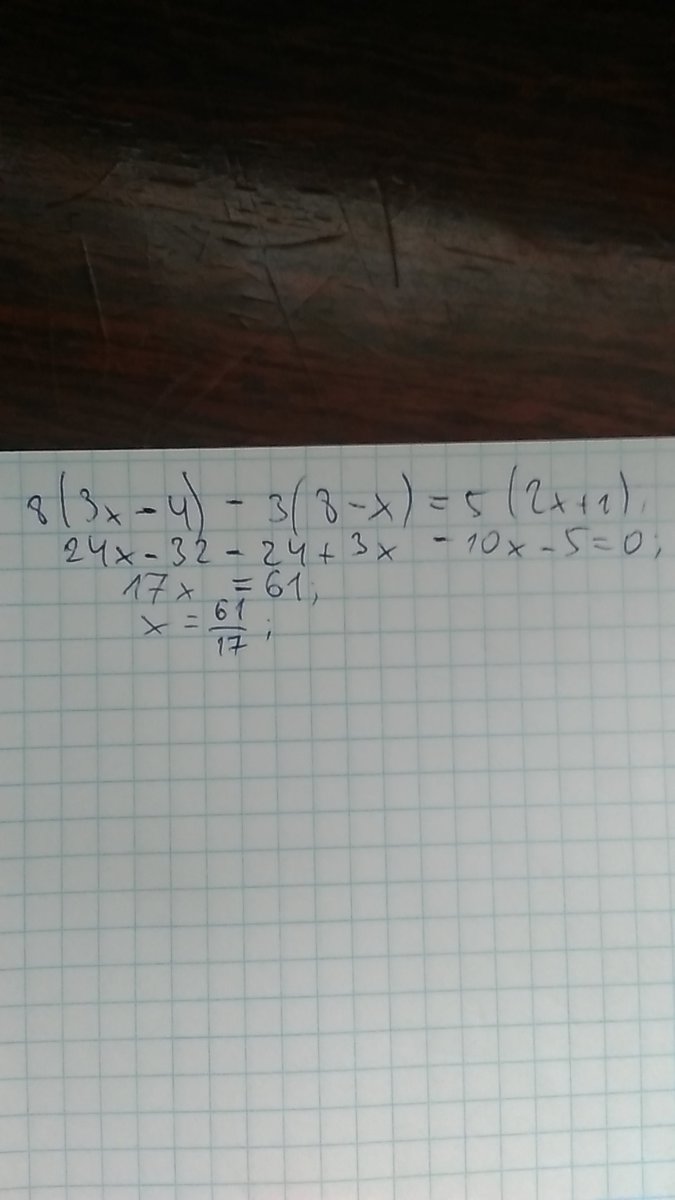 8(3x-4) - 3(8-x) = 5(2x+1);
24x-32-24+3x -10x-5=0;
17x = 61;
x = 61/17;